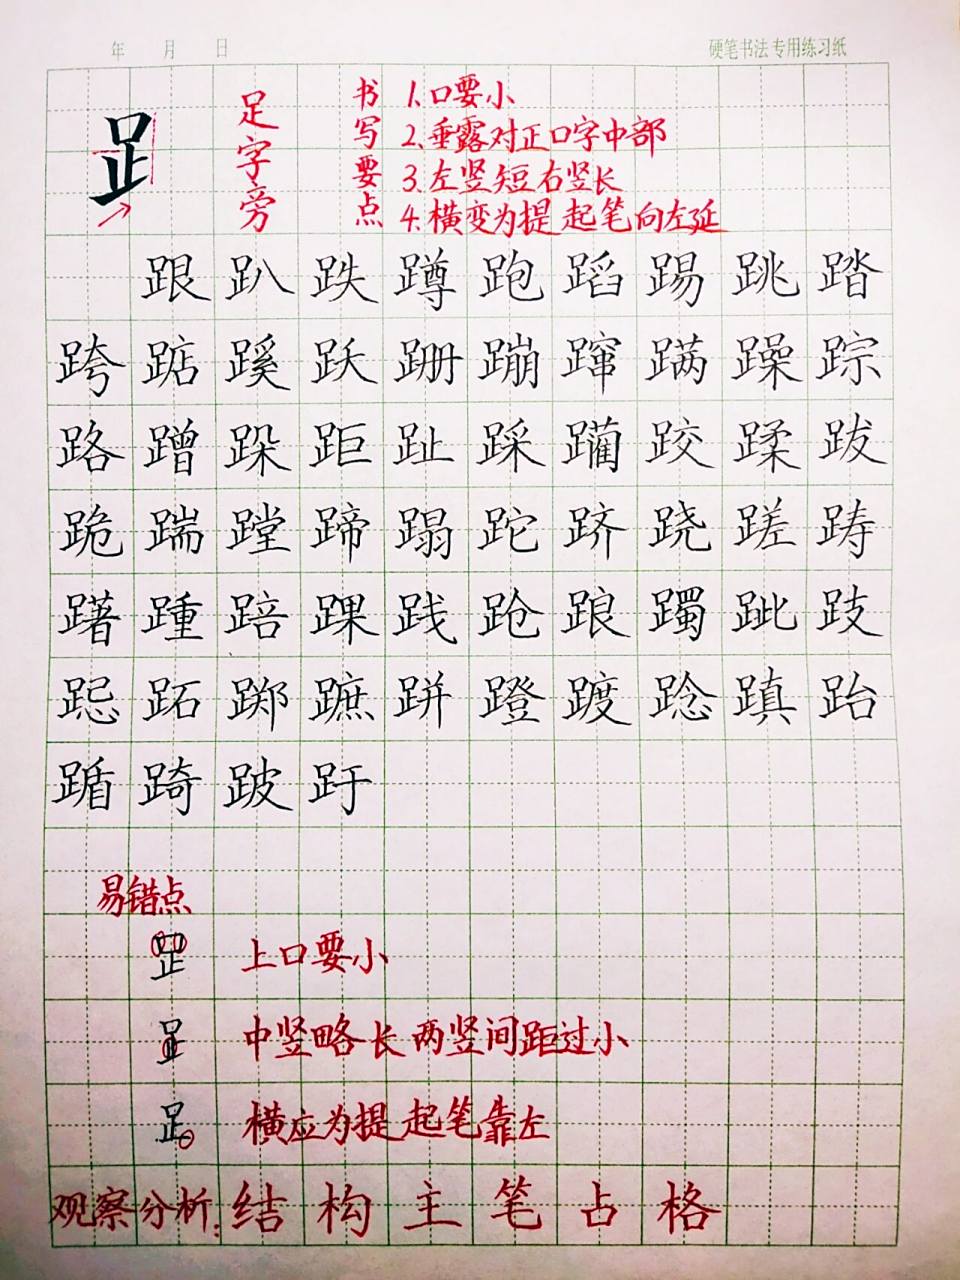 年 月 日 硬笔书法专用练习纸
足字旁
书写要点
1.口要小
2.垂露对正口字中部
3.左竖短右竖长
4.横变为提 起笔向左延
跟 趴 跌 蹲 跑 蹈 踢 跳 踏
跨 踮 蹊 跃 跚 蹦 蹿 蹒 躁 踪
路 蹭 跺 距 趾 踩 躏 跤 蹂 跋
跪 踹 蹚 蹄 蹋 跎 跻 跷 蹉 踌
躇 踵 踣 踝 践 跄 踉 躅 跐 跂
跽 跖 踯 蹠 跰 蹬 踱 跈 蹎 跆
踲 踦 跛 趶
易错点
上口要小
中竖略长 两竖间距过小
横应为提 起笔靠左
观察分析: 结 构 主 笔 占 格